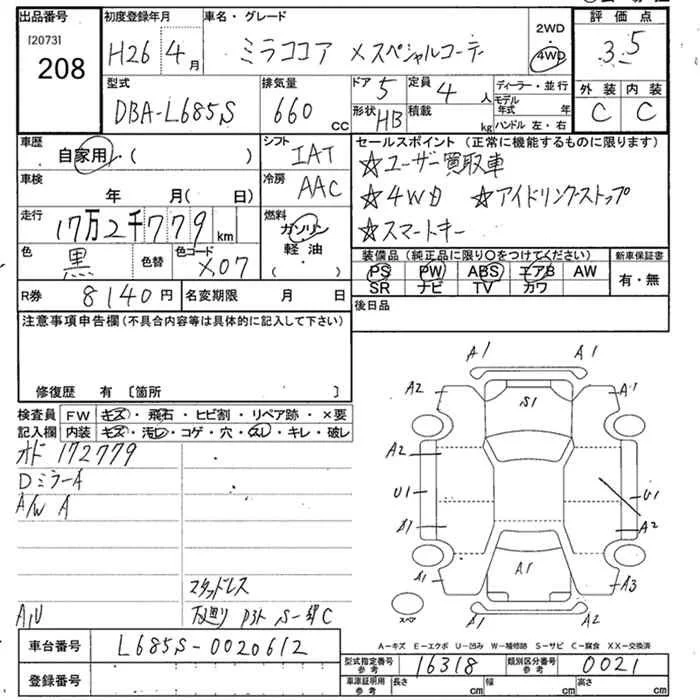 出品番号
[20731]
208
初度登録年月
H26 4月
車名・グレード
ミラココア Xスペシャルコーデ
2WD
・
4WD
評価点
3.5
外装 内装
C C
型式
DBA-L685S
排気量
660cc
ドア 5
形状 HB
定員 4人
積載 kg
ディーラー・並行
モデル年式 年
ハンドル 左・右
車歴
自家用 ( )
シフト
IAT
車検
年 月( 日)
冷房
AAC
走行
17万2千779km
燃料
ガソリン
軽油
( )
色
黒
色替
色コード
X07
R券 8140円
名変期限 月 日
セールスポイント (正常に機能するものに限ります)
☆ユーザー買取車
☆4WD ☆アイドリングストップ
☆スマートキー
装備品 (純正品に限り○をつけてください)
PS PW ABS エアB AW
SR ナビ TV カワ
新車保証書
有・無
後日品
注意事項申告欄(不具合内容等は具体的に記入して下さい)
修復歴 有 〔箇所 〕
検査員 FW キズ・飛石・ヒビ割・リペア跡・×要
記入欄 内装 キズ・汚れ・コゲ・穴・スレ・キレ・破レ
オド 172779
DミラーA
A/W A
スタッドレス
A/U
下廻り S-
A1 A1
A2 S1 A1
A2
U1 U1
S1 A2
S1 A1 A3
S1 A2
スペア
A-キズ E-エクボ U-凹み W-補修跡 S-サビ C-腐食 XX-交換済
車台番号 L685S-0020612
登録番号
型式指定番号 参考 16318
類別区分番号 参考 0021
車庫証明用 参考 長さ cm 幅 cm 高さ cm